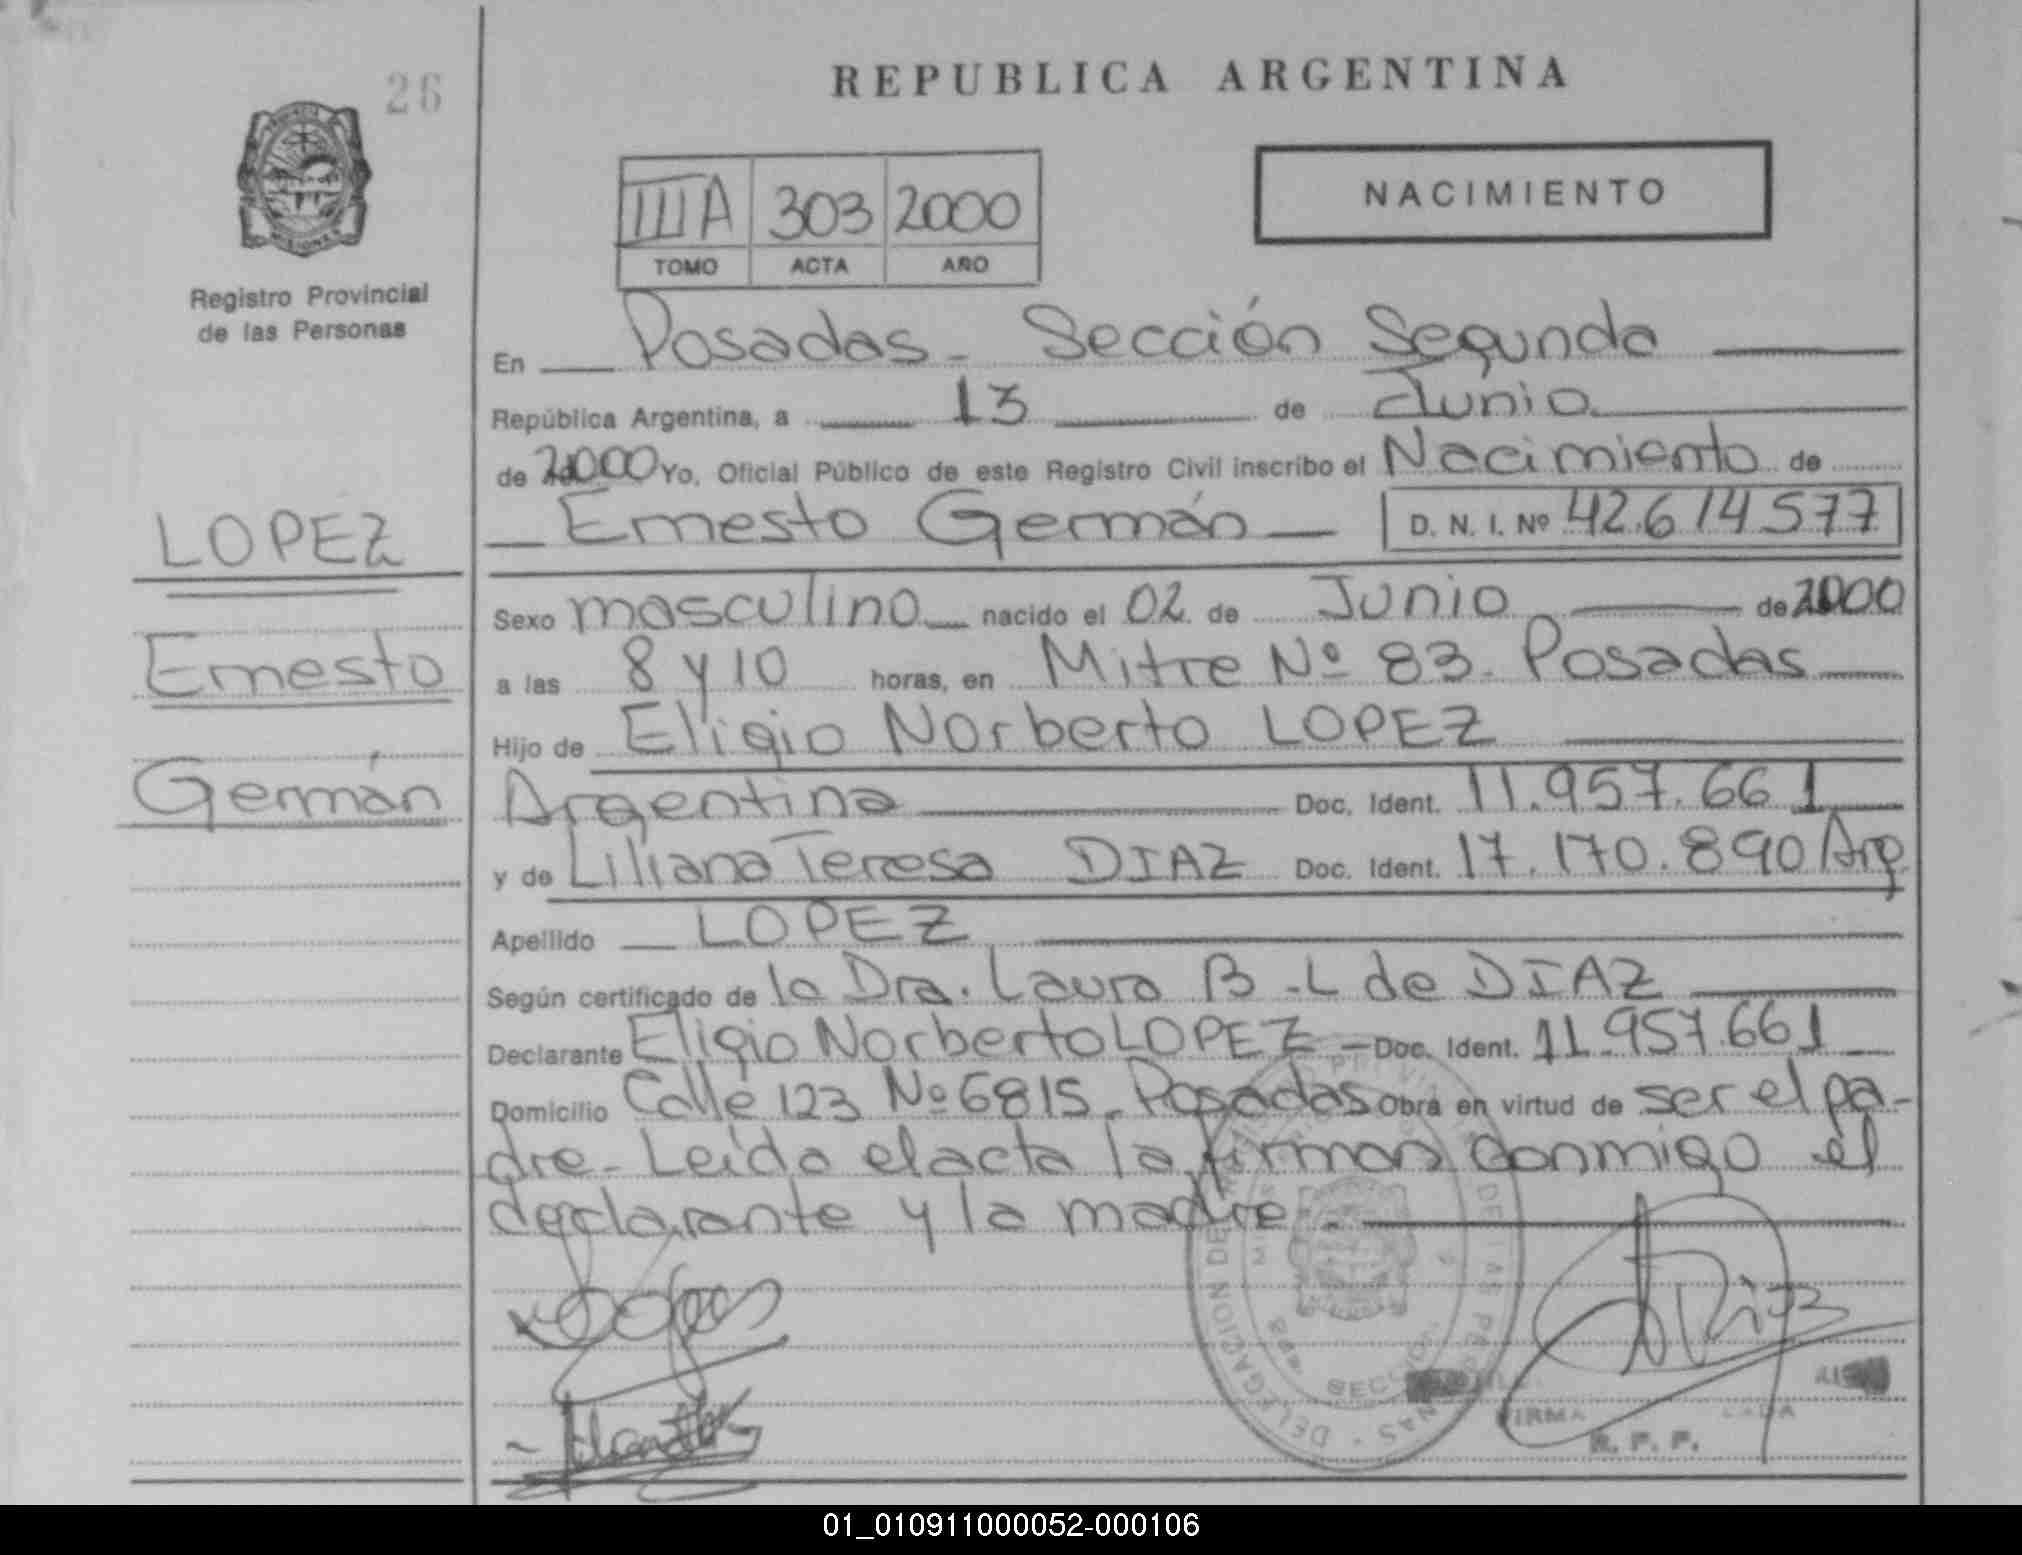 26
REPUBLICA ARGENTINA
NACIMIENTO
IIIA 303 2000
TOMO ACTA AÑO
Registro Provincial
de las Personas
En Posadas - Sección Segunda
República Argentina, a 13 de Junio
de 2000 Yo, Oficial Público de este Registro Civil inscribo el Nacimiento de
Ernesto Germán D. N. I. Nº 42.614577
LOPEZ
Ernesto
Germán
Sexo masculino nacido el 02 de Junio de 2000
a las 8 y 10 horas, en Mitre Nº 83. Posadas
Hijo de Eligio Norberto LOPEZ
Argentina Doc. Ident. 11.957.661
y de Liliana Teresa DIAZ Doc. Ident. 17.170.890 Arg
Apellido LOPEZ
Según certificado de la Dra. Laura B.L de DIAZ
Declarante Eligio Norberto LOPEZ - Doc. Ident. 11.957.661
Domicilio Calle 123 Nº 6815 - Posadas Obra en virtud de ser el pa-
dre - Leída el acta la firman conmigo el
declarante y la madre.
DELEGACION
SECCION
FIRMA
R. P. P.
01_010911000052-000106